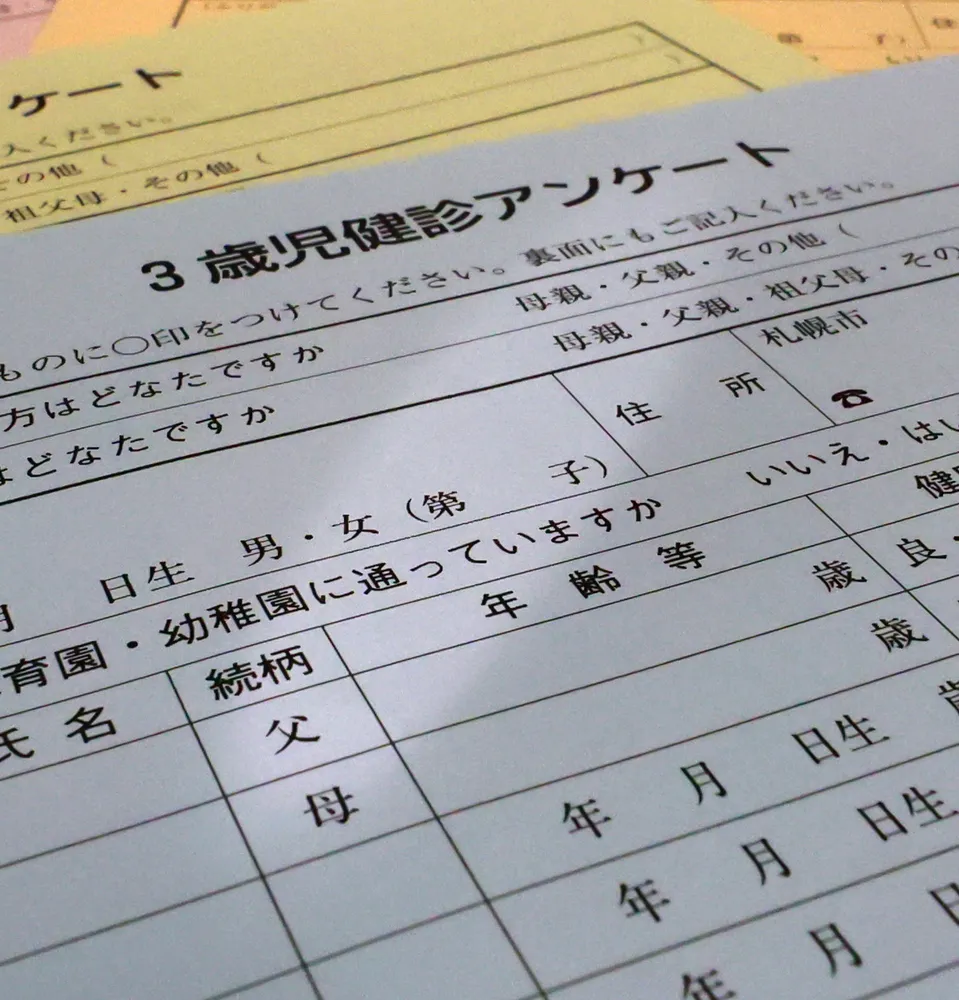 ケート
入ください。
その他（
祖父母・その他（
3歳児健診アンケート
ものに○印をつけてください。裏面にもご記入ください。
方はどなたですか 母親・父親・その他（
はどなたですか 母親・父親・祖父母・その
住所 札幌市
☎
月 日生 男・女（第 子）
育園・幼稚園に通っていますか いいえ・はい
氏名 続柄 年齢等 健
父 歳 良・
母 歳
年 月 日生 歳
年 月 日生
年 月 日